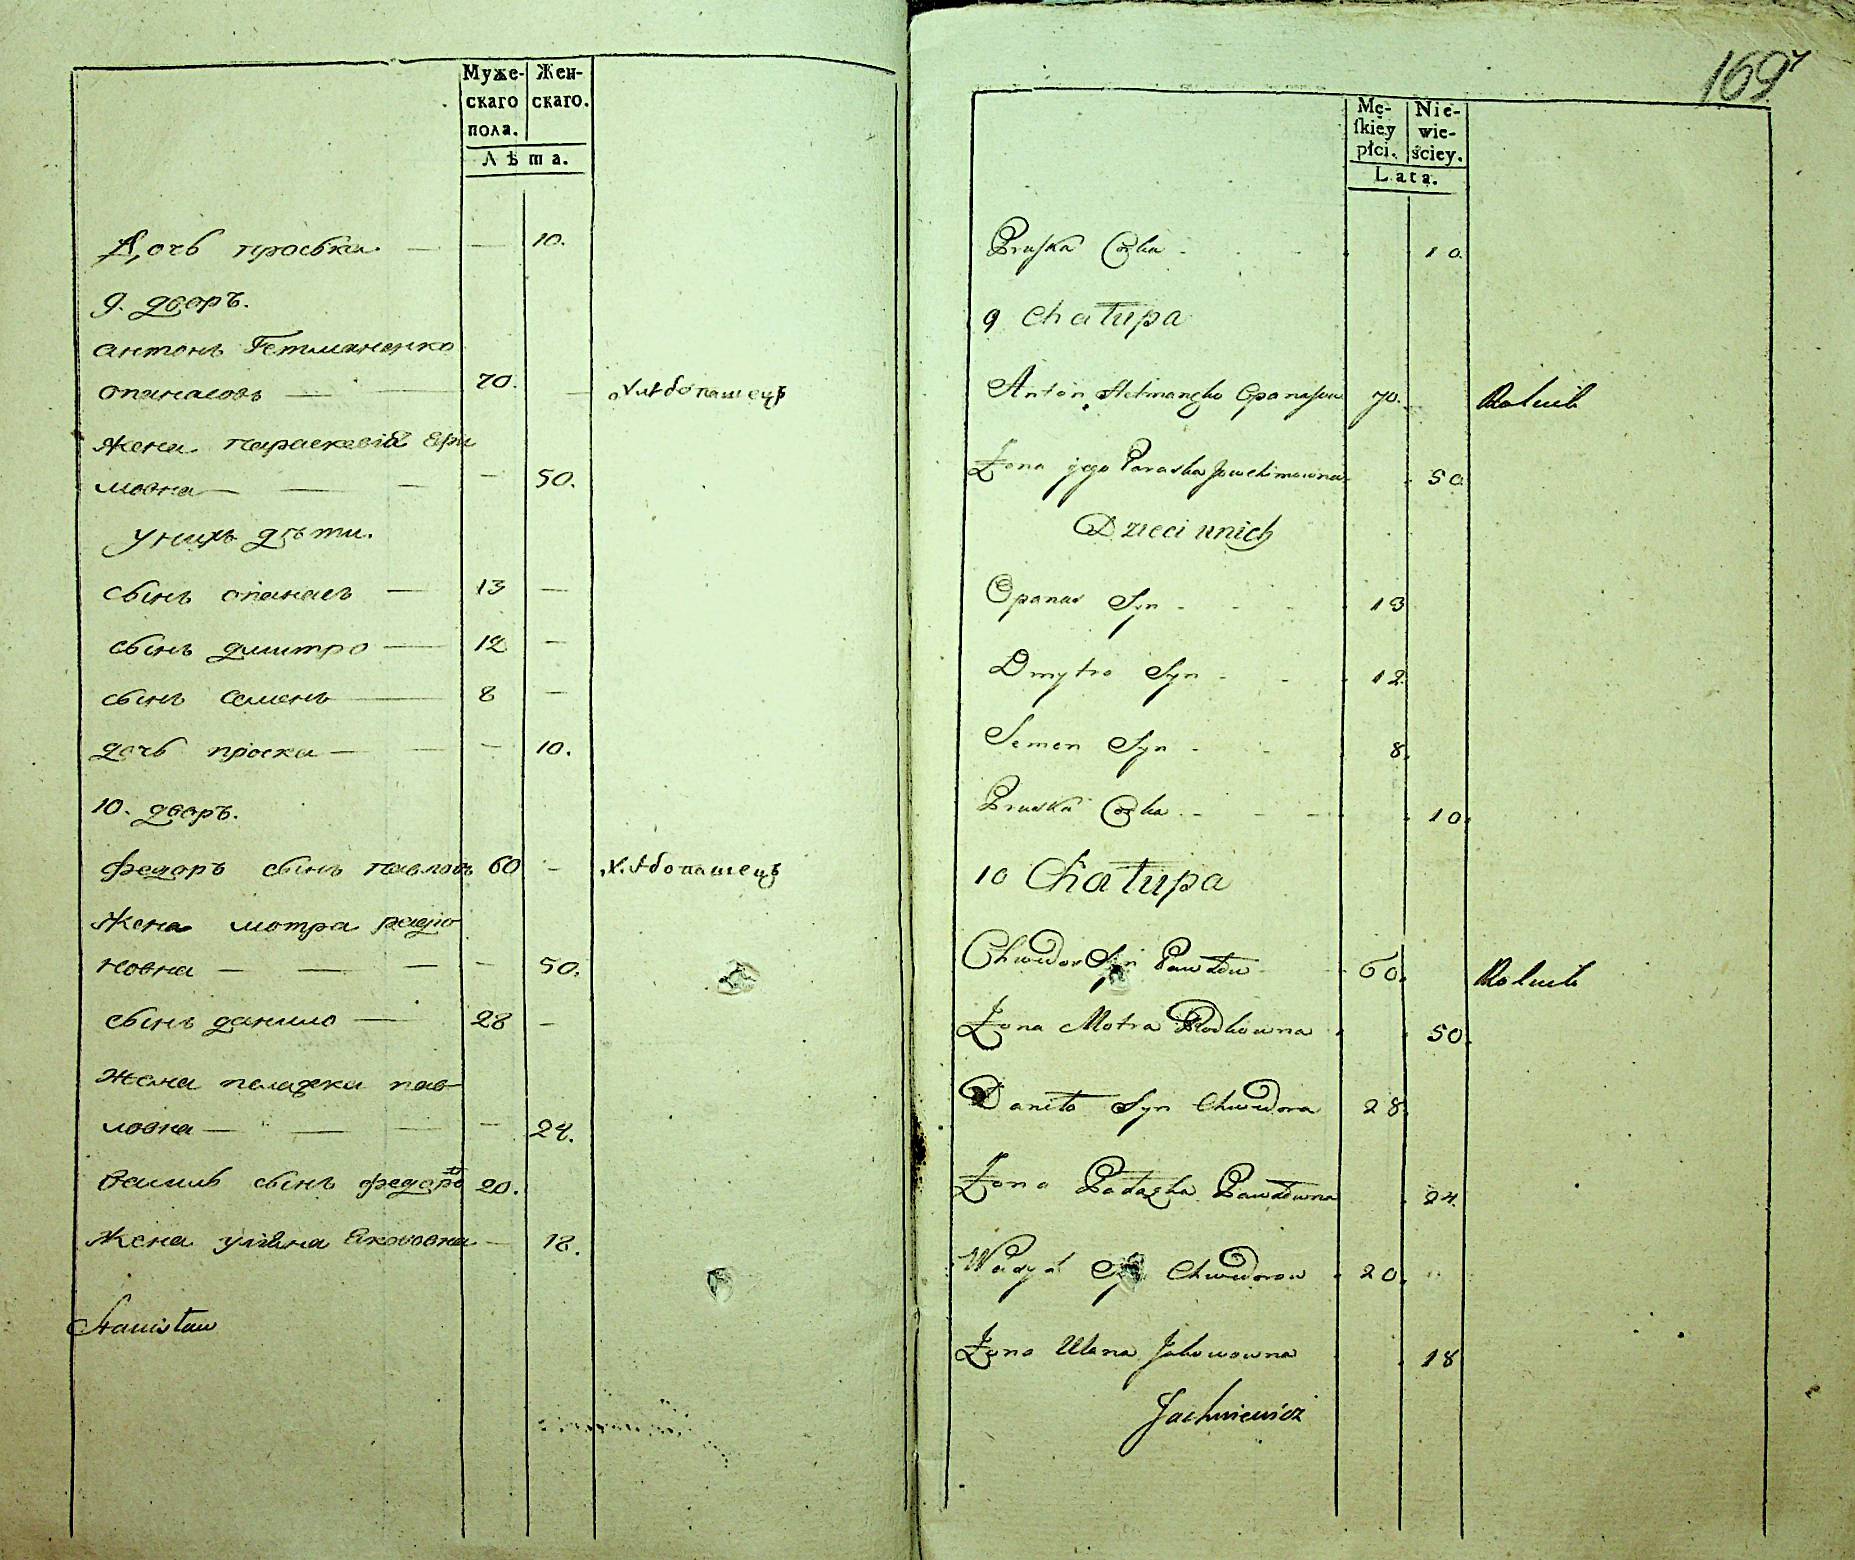 Муже-
скаго
пола.
Жен-
скаго.
Лѣта.
Дочь проська. — — 10.
9. дворъ.
антонъ Гетманенко
опанасовъ — — 70. — хлѣбопашецъ
жена параскевія Яри
мовна — — — — 50.
Унихъ дѣти.
сынъ опанасъ — 13 —
сынъ дмитро — 12 —
сынъ семенъ — 8 —
дочь проска — — — 10.
10. дворъ.
федоръ сынъ павловъ 60 — хлѣбопашецъ
жена мотра радіо
новна — — — — 50.
сынъ данило — 28 —
жена пелажка пав-
ловна — — — — 24.
василь сынъ федоровъ 20.
жена уліяна Якововна — 18.
Stanisław
169
Mę-
ſkiey
płci.
Nie-
wie-
ściey.
Lata.
Pruſka Corka 10.
9 Chałupa
Anton Hetmanzko Opanaſow 70. Rolnik
Żona jego Paraska Jowchimowna 50
Dzieci unich
Opanas Syn 13
Dmytro Syn 12
Semen Syn 8.
Pruska Corka 10.
10 Chałupa
Chwedor Syn Pawłow 60. Rolnik
Żona Motra Rodkowna 50.
Daniło Syn Chwedora 28.
Żona Pałazka Pawłowna 24.
Wasyl Syn Chwedorow 20.
Żona Ulana Jakowowna 18
Jachniewicz